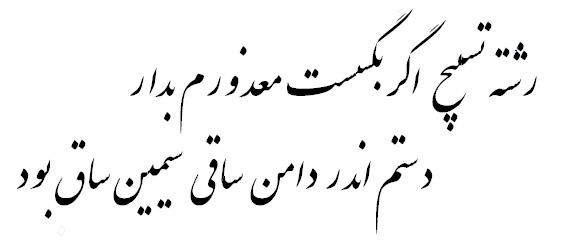 رشته تسبیح اگر بگسست معذورم بدار
دستم اندر دامن ساقی سیمین ساق بود